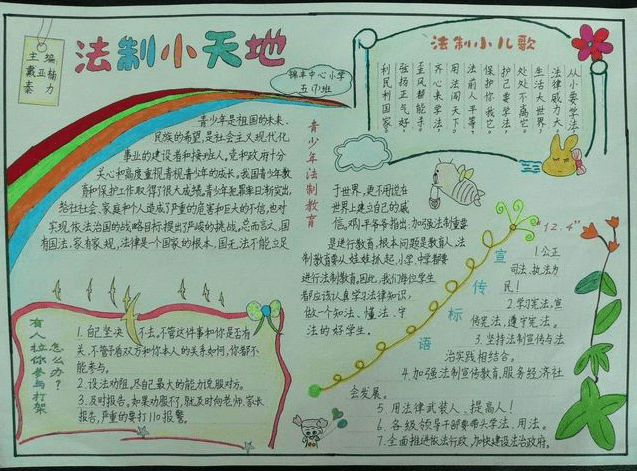 法制小天地
主编
戴亚杨
秦 力
锦丰中心小学
五(1)班
法制小儿歌
从小要学法
法律威力大。
生活大世界,
处处不离它。
护己要学法,
保护你我它。
法前人平等,
用法闯天下。
齐心来学法,
歪风帮能手。
强扬正气好,
利民利国家。
青少年法制教育
青少年是祖国的未来,
民族的希望,是社会主义现代化
事业的建设者和接班人,党和政府十分
关心和高度重视青少年的成长,我国青少年教
育和保护工作取得了很大成绩,青少年犯罪率日渐突出,
给社社会、家庭和个人造成了严重的危害和巨大的不信,也对
实现依法治国的战略目标提出了严峻的挑战。总而言之,国
有国法,家有家规,法律是一个国家的根本,国无法不能立足
于世界,更不用说在
世界上建立自己的威
信,邓小平爷爷指出:加强法制重要
是进行教育,根本问题是教育人,法
制教育要从娃娃抓起,小学、中学都要
进行法制教育,因此,我们每位学生
都应该认真学习法律知识,
做一个知法、懂法、守
法的好学生。
有人拉你参与打架
怎么办?
1.自己坚决 不去,不管这件事和你是否有
关,不管予盾双方和你本人的关系如何,你都不
能参与。
2.设法劝阻,尽自己最大的能力说服对方。
3.及时报告。如果劝服不了,就及时向老师、家长
报告,严重的要打110报警。
宣传标语
"12.4"
1.公正
司法、执法为
民!
2.学习宪法,宣
传宪法、遵守宪法。
3.坚持法制宣传与法
治实践相结合。
4.加强法制宣传教育,服务经济社
会发展。
5.用法律武装人、提高人!
6.各级领导干部要带头学法、用法。
7.全面推进依法行政,加快建设法治政府。